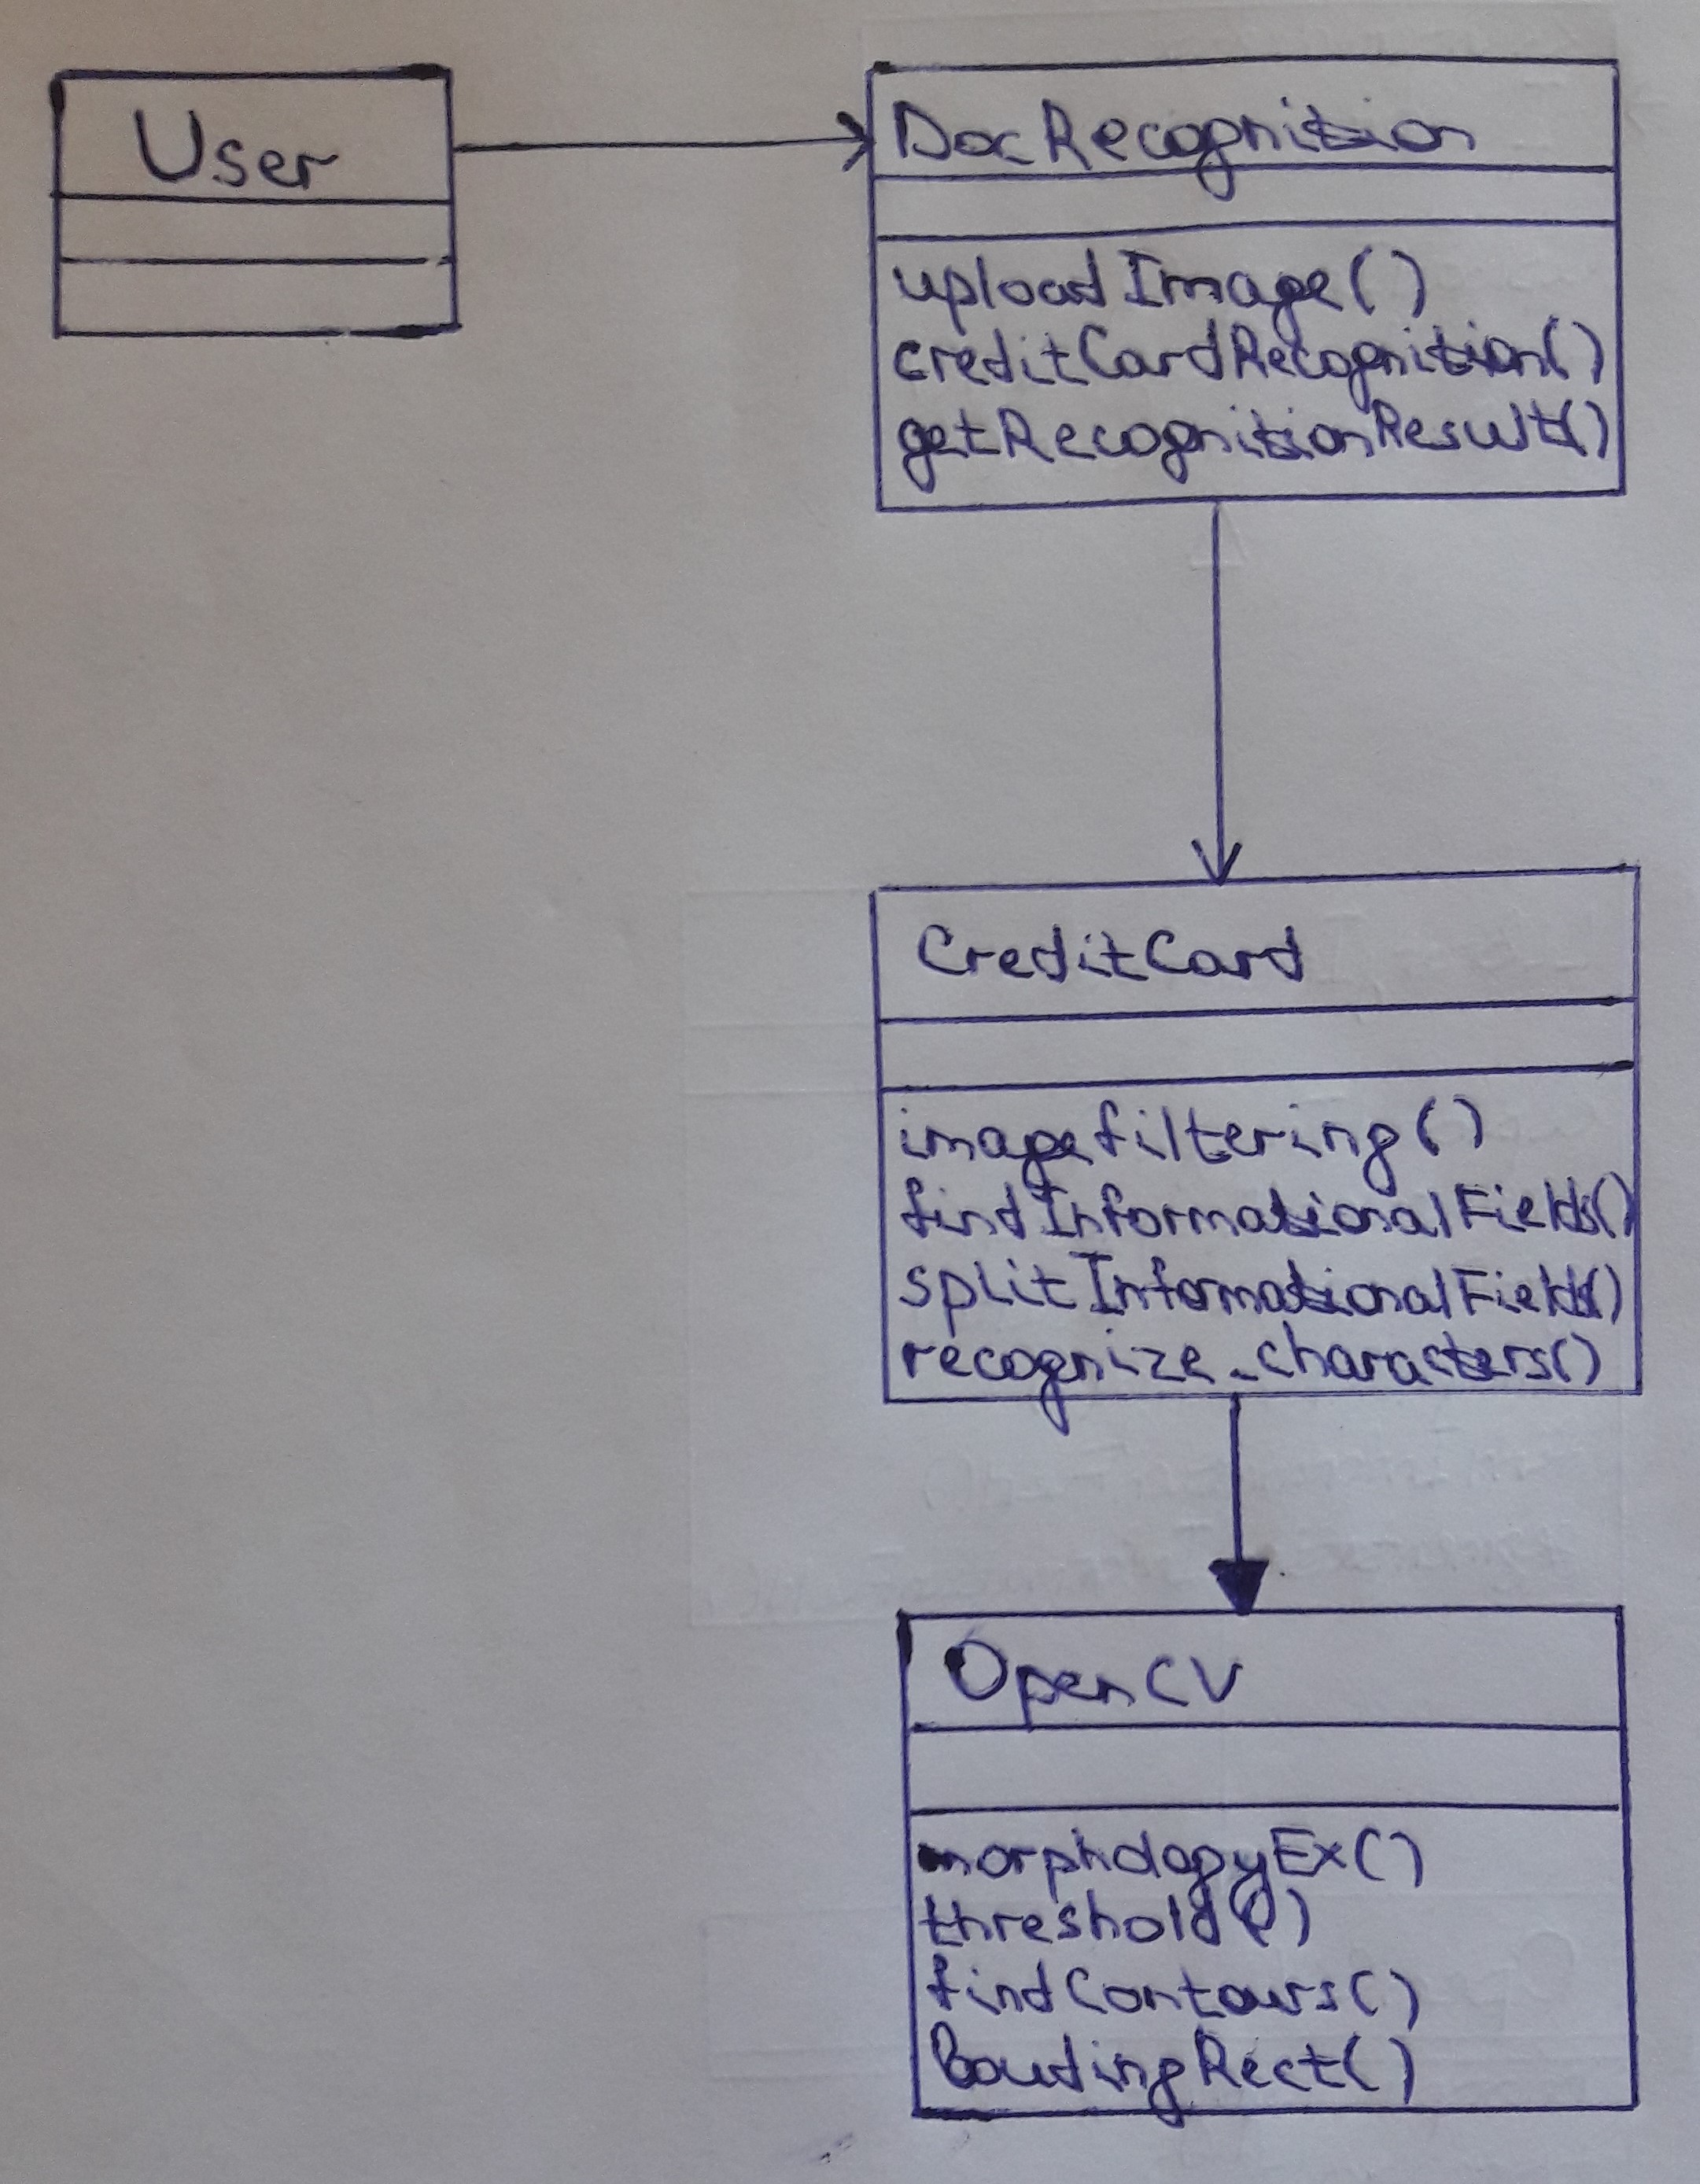 User
DocRecognition
uploadImage()
creditCardRecognition()
getRecognitionResult()
CreditCard
imagefiltering()
findInformationalFields()
splitInformationalFields()
recognize_characters()
OpenCV
morphologyEx()
threshold()
findContours()
BoudingRect()